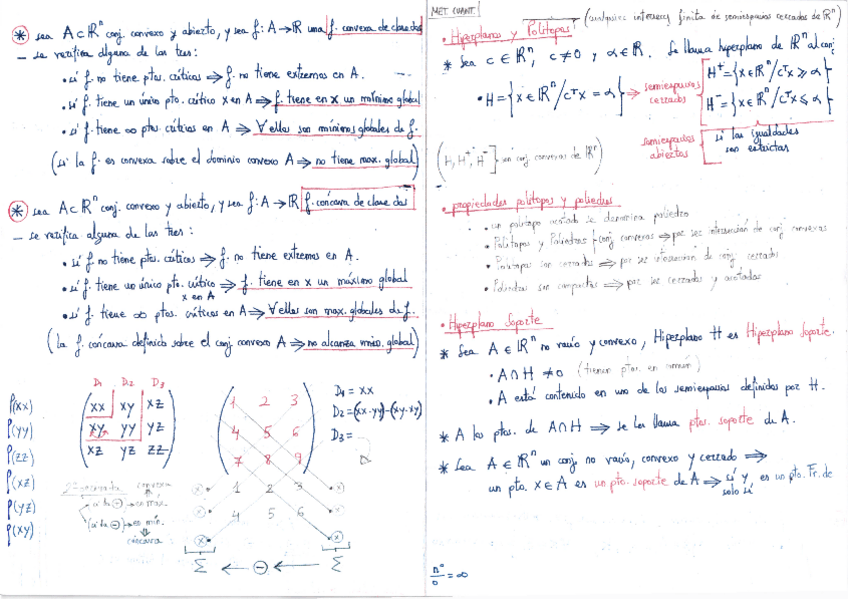 * sea A⊂ℝⁿ conj. convexo y abierto, y sea f: A→ℝ una f. convexa de clase dos
— se verifica alguna de las tres:
• si f. no tiene ptos. críticos ⇒ f. no tiene extremos en A.
• si f. tiene un único pto. crítico x en A ⇒ f. tiene en x un mínimo global
• si f. tiene ∞ ptos. críticos en A ⇒ ∀ ellos son mínimos globales de f.
(si la f. es convexa sobre el dominio convexo A ⇒ no tiene max. global)
* sea A⊂ℝⁿ conj. convexo y abierto, y sea f: A→ℝ f. cóncava de clase dos
— se verifica alguna de las tres:
• si f. no tiene ptos. críticos ⇒ f. no tiene extremos en A.
• si f. tiene un único pto. crítico x en A ⇒ f. tiene en x un máximo global
• si f. tiene ∞ ptos. críticos en A ⇒ ∀ ellos son max. globales de f.
(la f. cóncava definida sobre el conj. convexo A ⇒ no alcanza mín. global)
D₁ D₂ D₃
xx xy xz
xy yy yz
xz yz zz
f(xx)
f(yy)
f(zz)
f(xz)
f(yz)
f(xy)
1 2 3
4 5 6
7 8 9
1 2 3
4 5 6
Σ ← ⊖ ← Σ
D₁ = xx
D₂ = (xx·yy)-(xy·xy)
D₃ =
convexa
cóncava
MET CUANT.
• Hiperplanos y Politopos → (cualquier intersecc. finita de semiespacios cerrados de ℝⁿ)
* Sea c ∈ ℝⁿ, c ≠ 0 y α ∈ ℝ. Se llama hiperplano de ℝⁿ al conj
• H = {x ∈ ℝⁿ / cᵀx = α} → semiespacios cerrados
H⁺ = {x ∈ ℝⁿ / cᵀx ≥ α}
H⁻ = {x ∈ ℝⁿ / cᵀx ≤ α}
semiespacios abiertos
si las igualdades son estrictas
(H, H⁺, H⁻] son conj convexos de ℝⁿ)
• propiedades politopos y poliedros
• un politopo acotado se denomina poliedro
• Politopos y Poliedros conj convexos ⇒ por ser intersección de conj convexos
• Politopos son cerrados ⇒ por ser intersección de conj. cerrados
• Poliedros son compactos ⇒ por ser cerrados y acotados
• Hiperplano Soporte
* Sea A ∈ ℝⁿ no vacío y convexo, Hiperplano H es Hiperplano Soporte.
• A∩H ≠ 0 (tienen ptos. en común)
• A está contenido en uno de los semiespacios definidos por H.
* A los ptos. de A∩H ⇒ se les llama ptos. soporte de A.
* Sea A ∈ ℝⁿ un conj. no vacío, convexo y cerrado ⇒
un pto. x∈A es un pto. soporte de A ⇒ si y solo si es un pto. Fr. de
nº/0 = ∞